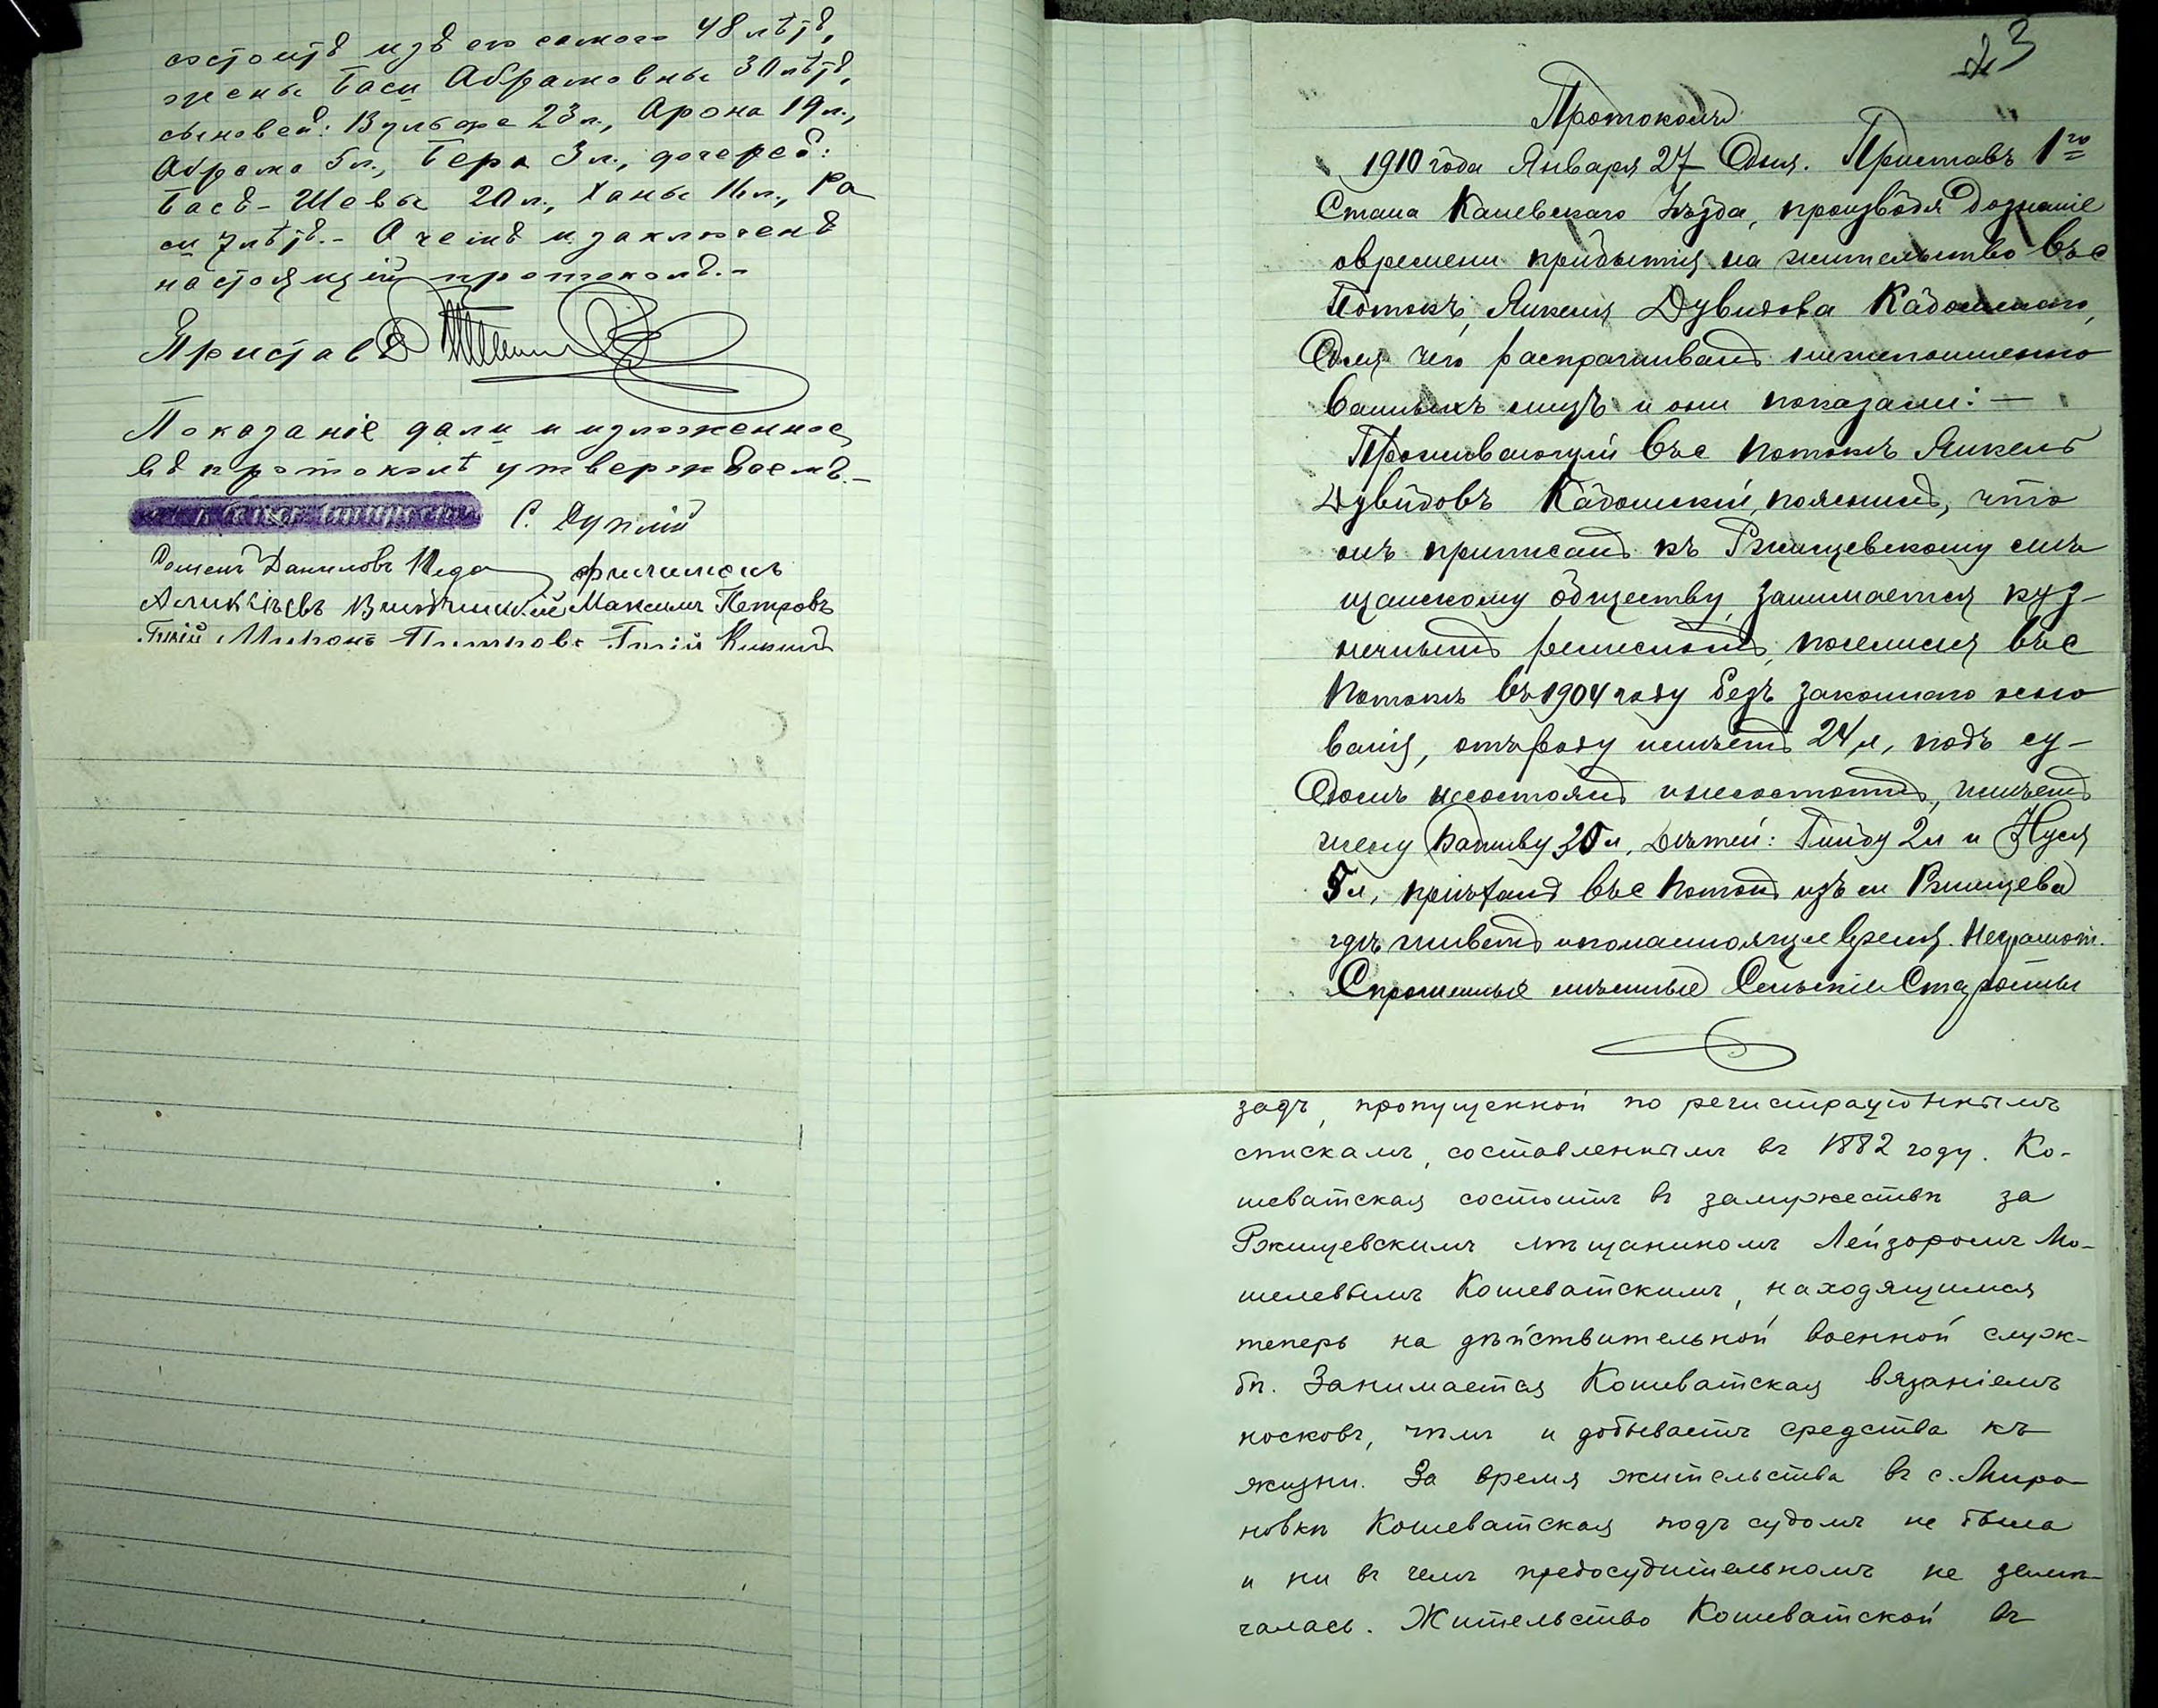 состоитъ изъ его самого 48 лѣтъ,
жены Баси Абрамовны 30 лѣтъ,
сыновей: Вульфа 23 л., Арона 19 л.,
Абрама 5 л., Бера 3 л., дочерей:
Бася-Шевы 20 л., Ханы 16 л., Ра
си 7 лѣтъ.- О чемъ и заключенъ
настоящій протоколъ.-
Приставъ
Показаніе дали и изложенное
въ протоколѣ утверждаемъ.-
С. Дуплій
Семенъ Даниловъ
Максимъ Петровъ
Гній Миронъ
23
Протоколъ
1910 года Января 27 Дня. Приставъ 1го
Стана Каневскаго Уѣзда, производя Дознаніе
овремени прибытія на жительство Въ с
Потокъ, Янкеля Дувидова Кадомскаго,
Для чего распрашивалъ нижепоимено
ванныхъ лицъ и они показали: —
Проживающій Въ с Потокѣ Янкель
Дувидовъ Кадомскій, пояснилъ, что
онъ приписанъ къ Ржищевскому мѣ
щанскому обществу, занимается куз-
нечнымъ ремесломъ, поселился въ с
Потокѣ въ 1904 году безъ законнаго осно
ванія, отъ роду имѣетъ 24 л, подъ су-
Домъ несостоялъ и несостоитъ, имѣетъ
жену 20 л, Дѣтей: 2 л и Нуся
5 л, пріѣхалъ въ с Потокъ изъ м Ржищева
гдѣ живетъ и понастоящее время. Неграмот.
Спрошенные мѣстные Сельскіе Старосты
задъ, пропущенной по регистраціоннымъ
спискамъ, составленнымъ въ 1882 году. Ко-
шеватская состоитъ въ замужествѣ за
Ржищевскимъ мѣщаниномъ Лейзоромъ Мо-
шелевымъ Кошеватскимъ, находящимся
теперь на дѣйствительной военной служ-
бѣ. Занимается Кошеватская вязаніемъ
носковъ, чѣмъ и добываетъ средства къ
жизни. За время жительства въ с. Миро-
новкѣ Кошеватская подъ судомъ не была
и ни въ чемъ предосудительномъ не замѣ-
чалась. Жительство Кошеватской въ